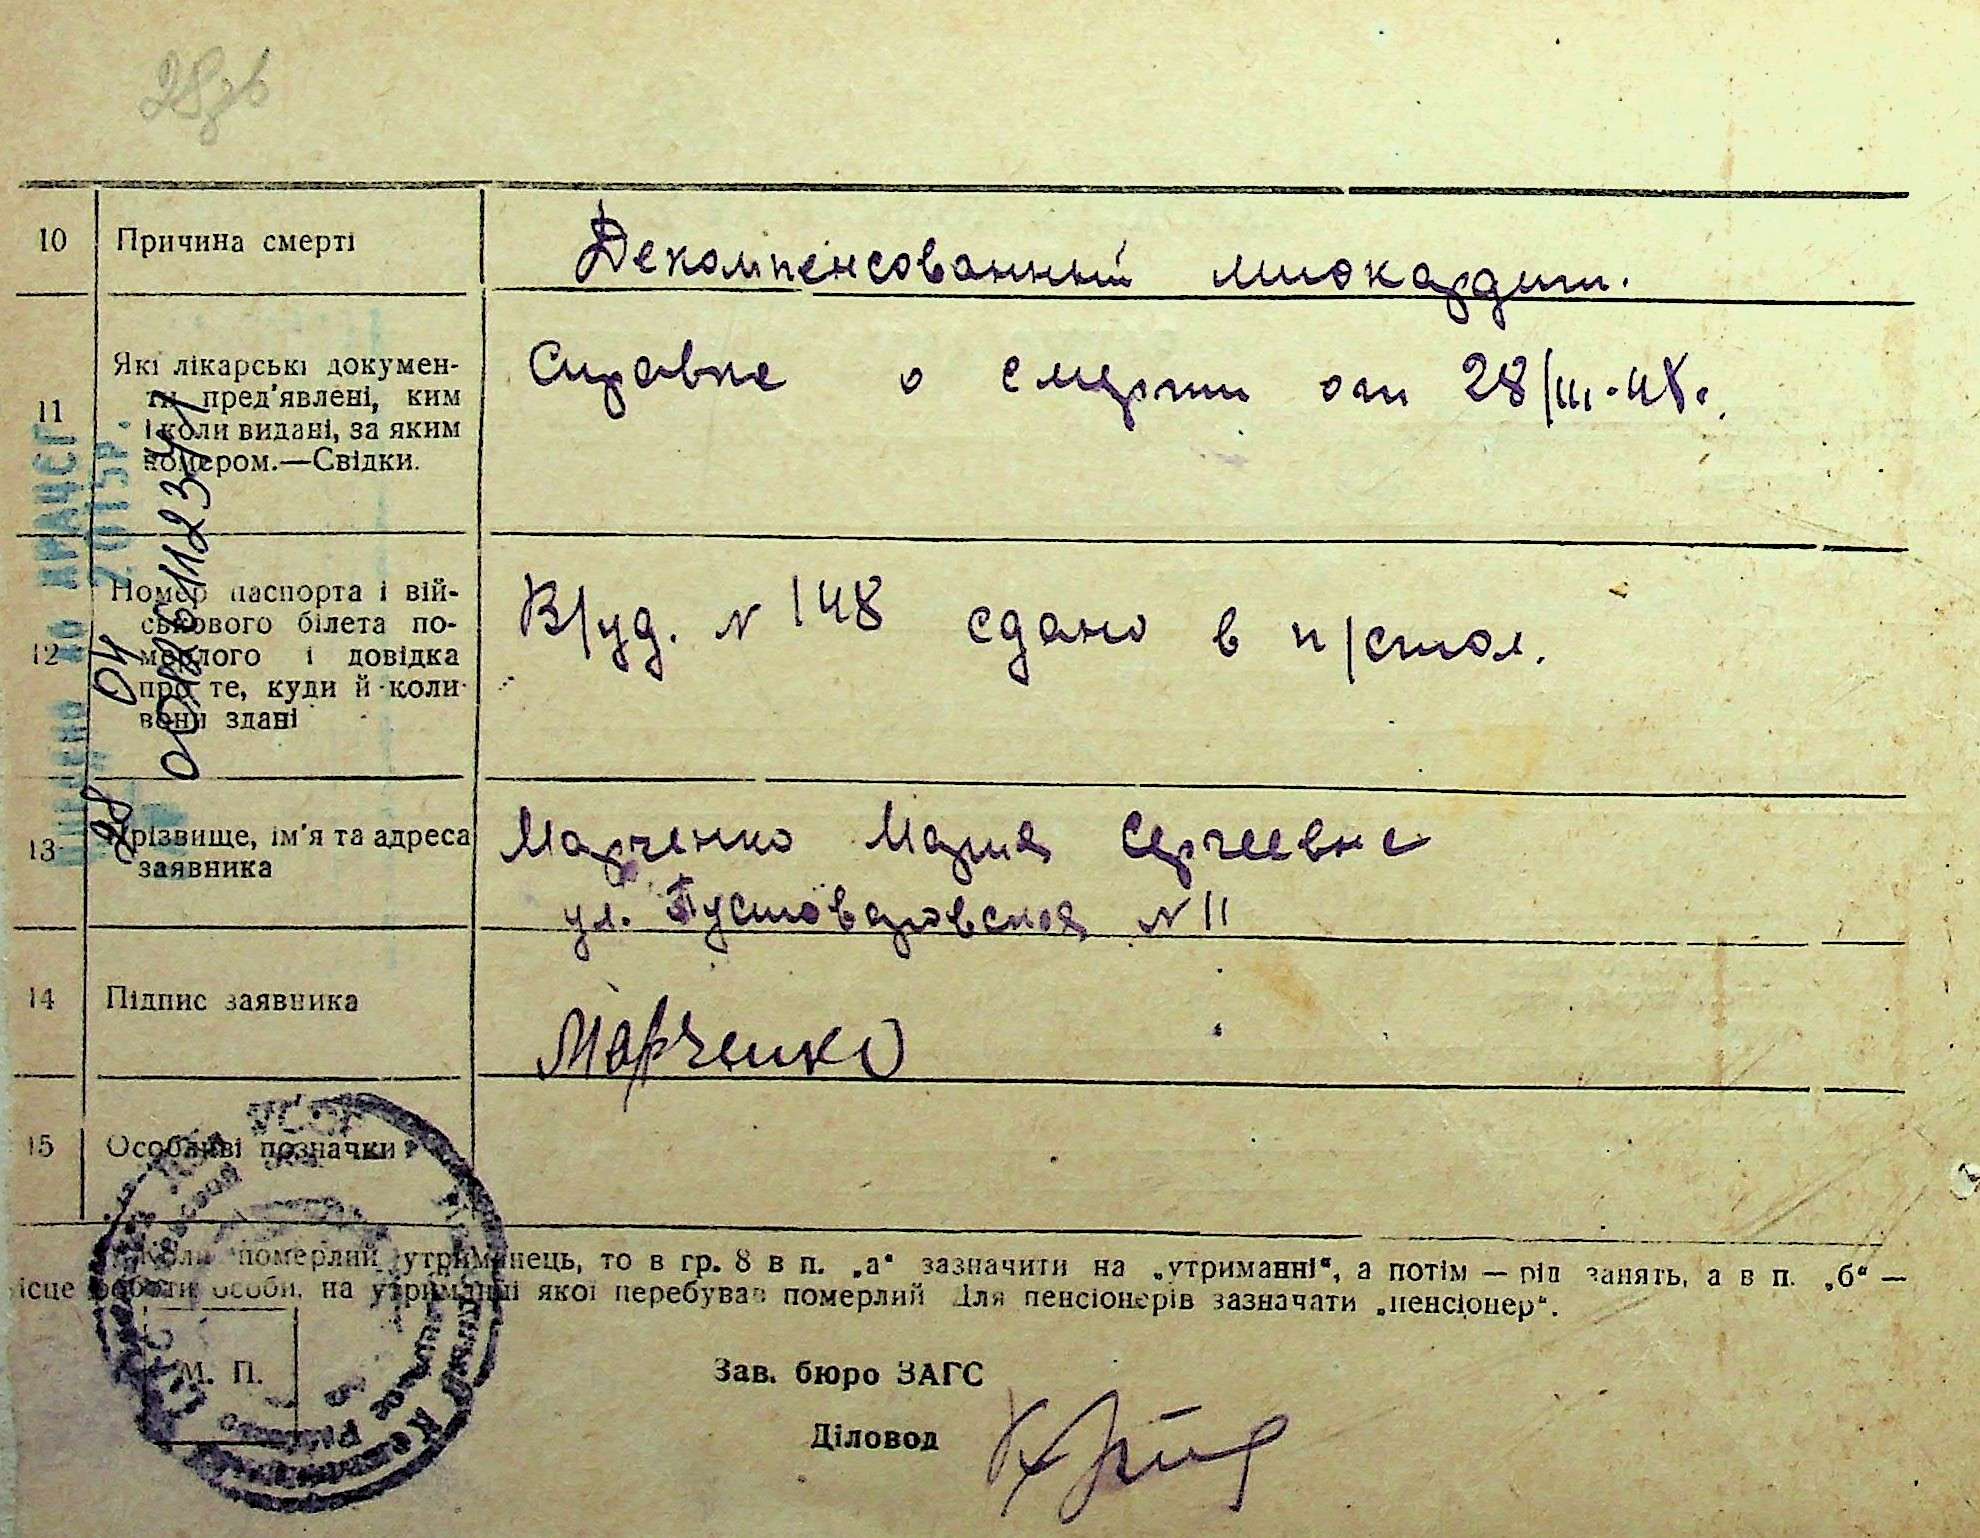 28
10 Причина смерті Декомпенсованный миокардит.
11 Які лікарські докумен-
ти пред'явлені, ким
і коли видані, за яким
номером.—Свідки.
Справка о смерти от 28/III.48г.
12 Номер паспорта і вій-
ськового білета по-
мерлого і довідка
про те, куди й коли
вони здані
В/уд. N 148 сдано в п/стол.
13 Прізвище, ім'я та адреса
заявника
Марченко Мария Сергеевна
ул. Пустоваровская N 11
14 Підпис заявника Марченко
15 Особливі позначки
Коли померлий утриманець, то в гр. 8 в п. „а“ зазначити на „утриманні“, а потім — рід занять, а в п. „б“ —
місце роботи особи, на утриманні якої перебував померлий Для пенсіонерів зазначати „пенсіонер“.
М. П.
Зав. бюро ЗАГС
Діловод
внесено до ДРАЦСГ
28 04 2015р.
УССР